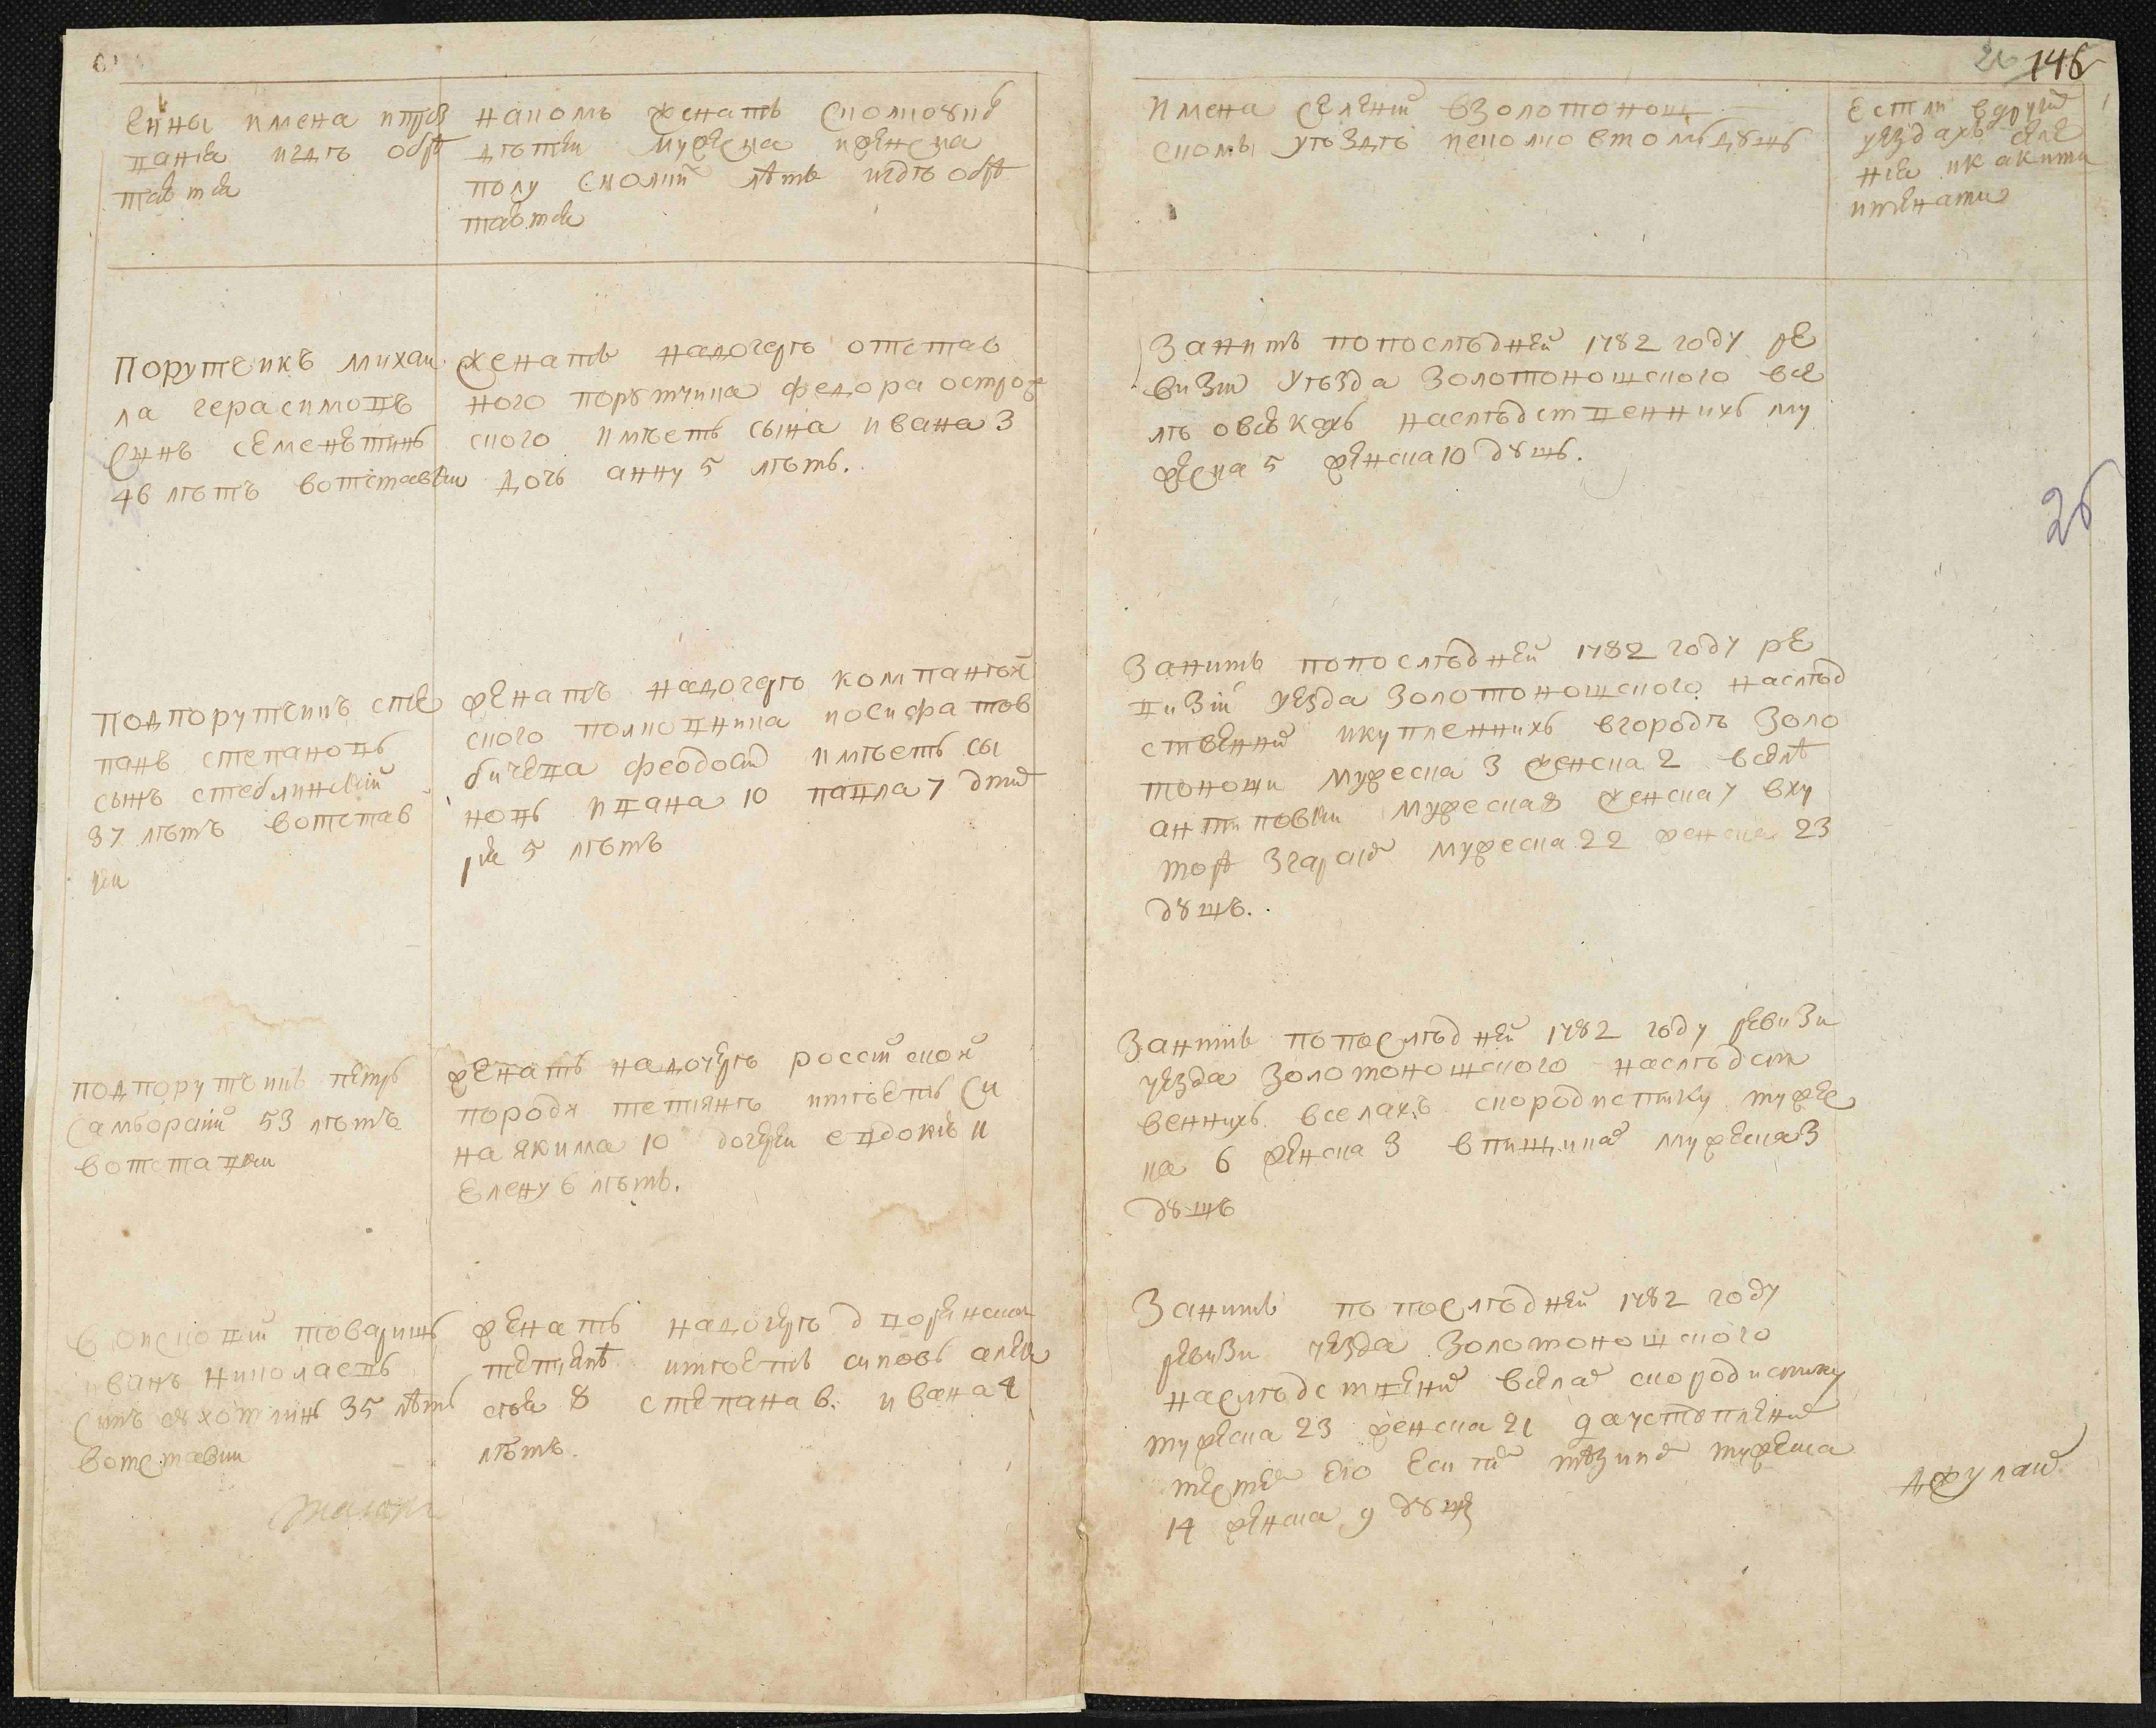 146
26
Ечны имена и проз
вания и гдѣ обрѣ
тается
на комъ женатъ сколко уне
дѣтей мужеска и женска
полу сколких лѣтъ и гдѣ обрѣ
таются
Имена селений в Золотонош
скомъ уѣздѣ и сколко в томъ душъ
Естли в других
уездахъ селе
ния и какими
Порутчикъ михаи
ла герасимовъ
Сынъ семенетинъ
46 лѣтъ вотставки
женатъ на дочерѣ отстав
ного порутчика федора острож
ского имѣетъ сына ивана 3
дочь анну 5 лѣтъ.
За нимъ по послѣдней 1782 году ре
визии уѣзда Золотоношского в се
лѣ наслѣдственнихъ му
жеска 5 женска 10 душъ.
26
подпорутчикъ сте
панъ степановъ
сынъ стеблинский
37 лѣтъ вотстав
ки
женатъ на дочерѣ компанѣй
ского полковника иосифа
бичева феодосии имѣетъ сы
новъ ивана 10 павла 7
5 лѣтъ
За нимъ по послѣдней 1782 году ре
визии уезда Золотоношского наслѣд
ственних и купленнихъ в городѣ Золо
тоноши мужеска 3 женска 2 в селѣ
антиповки мужеска 8 женска 7 в ху
торѣ Згарах мужеска 22 женска 23
душъ.
подпорутчикъ петръ
Самборский 53 лѣтъ
вотставки
женатъ на дочерѣ российской
породы тетянѣ имѣетъ сы
на якима 10 дочерей евдокию 11
Елену 6 лѣтъ.
За нимъ по послѣдней 1782 году ревизи
уезда Золотоношского наслѣдст
венних в селах скородистику муже
ка 6 женска 3 в пищиках мужеска 3
душъ
Войсковий товаришъ
иванъ николаевъ
Синъ сухотинъ 35 лѣтъ
вотставки
женатъ на дочерѣ дворянской
тетянѣ имѣетъ синовъ алек
сѣя 8 степана 6. ивана 4
лѣтъ.
За нимъ по послѣдней 1782 году
ревизи уезда Золотоношского
наслѣдственних в селах скородистику
мужеска 23 женска 21 да уступлених
его мужеска
14 женска 9 душъ